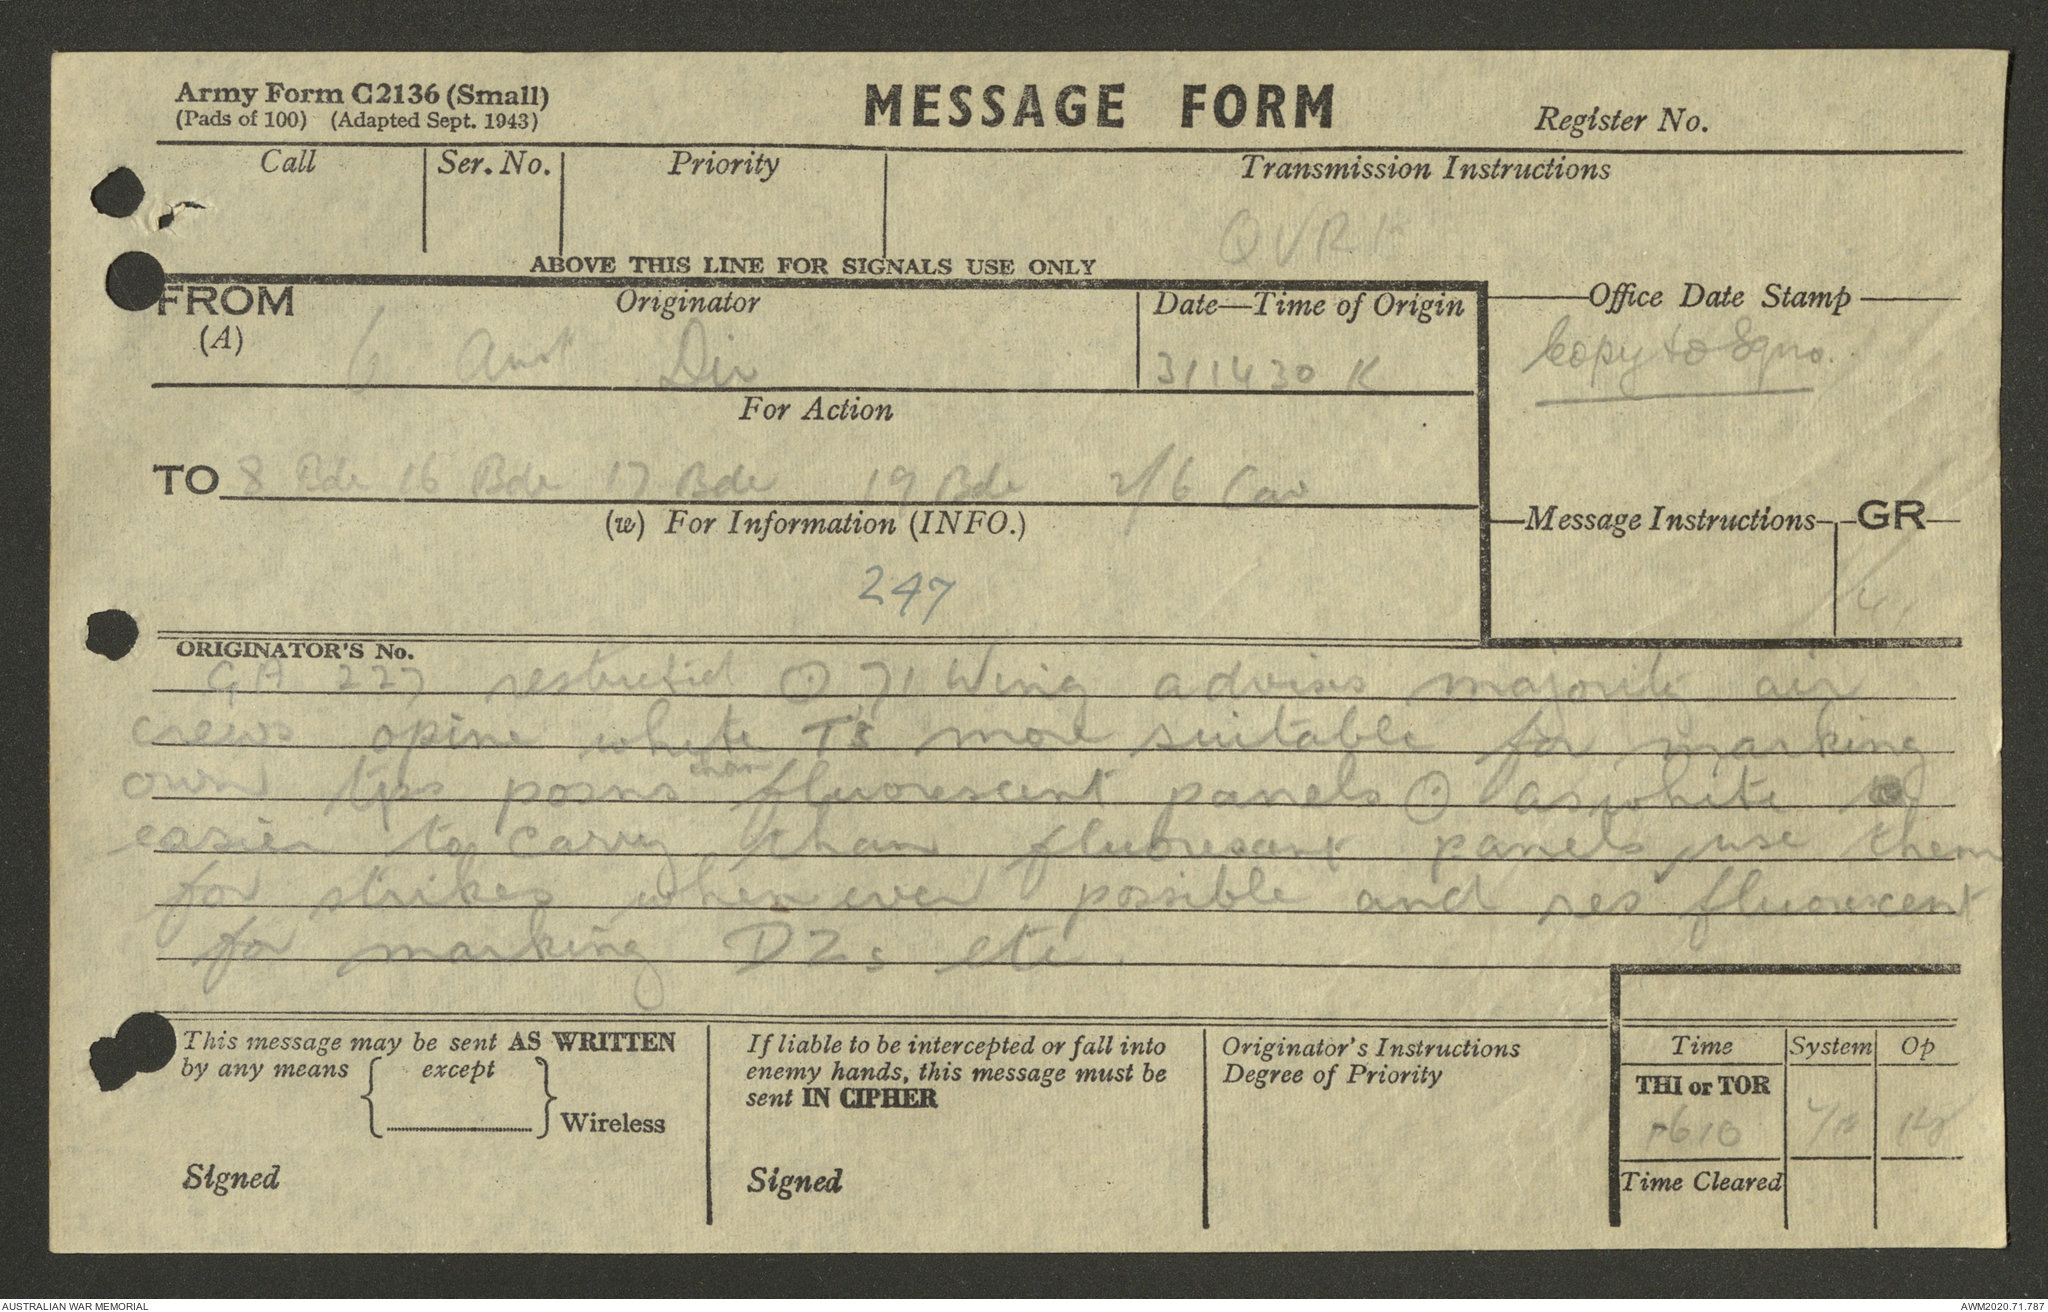 Army Form C2136 (Small)
(Pads of 100) (Adapted Sept. 1943)
MESSAGE FORM
Register No.
Call
Ser. No.
Priority
Transmission Instructions
ABOVE THIS LINE FOR SIGNALS USE ONLY
FROM
(A)
Originator
6 Aust Div
Date—Time of Origin
311430 K
Office Date Stamp
Copy to Sqns.
For Action
TO 8 Bde 16 Bde 17 Bde 19 Bde 2/6 Cav
(w) For Information (INFO.)
247
Message Instructions
GR
ORIGINATOR'S No.
GA 227 restricted ⊙ 71 Wing advises majority air
crews opine white Ts more suitable for marking
own tps posns than fluorescent panels ⊙ as white
easier to carry than fluorescent panels use them
for strikes whenever possible and res fluorescent
for marking DZs etc.
This message may be sent AS WRITTEN
by any means
except
Wireless
Signed
If liable to be intercepted or fall into
enemy hands, this message must be
sent IN CIPHER
Signed
Originator's Instructions
Degree of Priority
Time
System
Op
THI or TOR
1610
Time Cleared
AUSTRALIAN WAR MEMORIAL
AWM2020.71.787